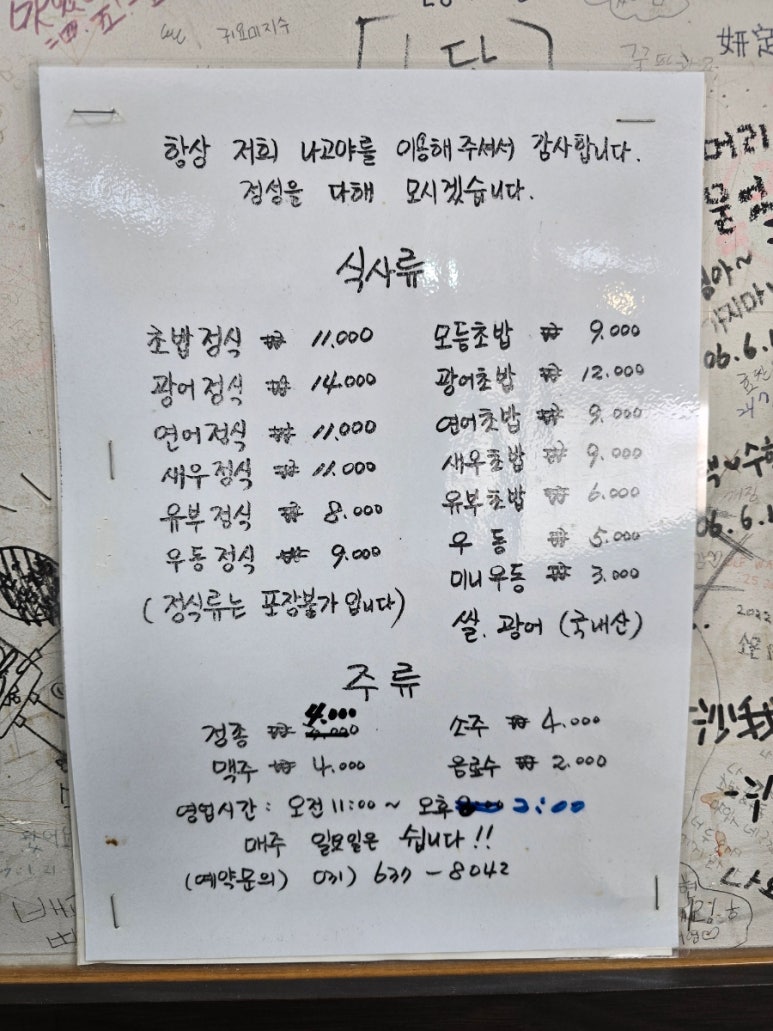 항상 저희 나고야를 이용해 주셔서 감사합니다.
정성을 다해 모시겠습니다.
식사류
초밥정식 ₩ 11.000
광어정식 ₩ 14.000
연어정식 ₩ 11.000
새우정식 ₩ 11.000
유부정식 ₩ 8.000
우동정식 ₩ 9.000
(정식류는 포장불가 입니다)
모듬초밥 ₩ 9.000
광어초밥 ₩ 12.000
연어초밥 ₩ 9.000
새우초밥 ₩ 9.000
유부초밥 ₩ 6.000
우 동 ₩ 5.000
미니우동 ₩ 3.000
쌀. 광어 (국내산)
주류
정종 ₩ 4.000
맥주 ₩ 4.000
소주 ₩ 4.000
음료수 ₩ 2.000
영업시간 : 오전 11:00 ~ 오후 2:00
매주 일요일은 쉽니다!!
(예약문의) 031) 637 - 8042
귀요미지수
머리
06.6.1
06.6.1
2022